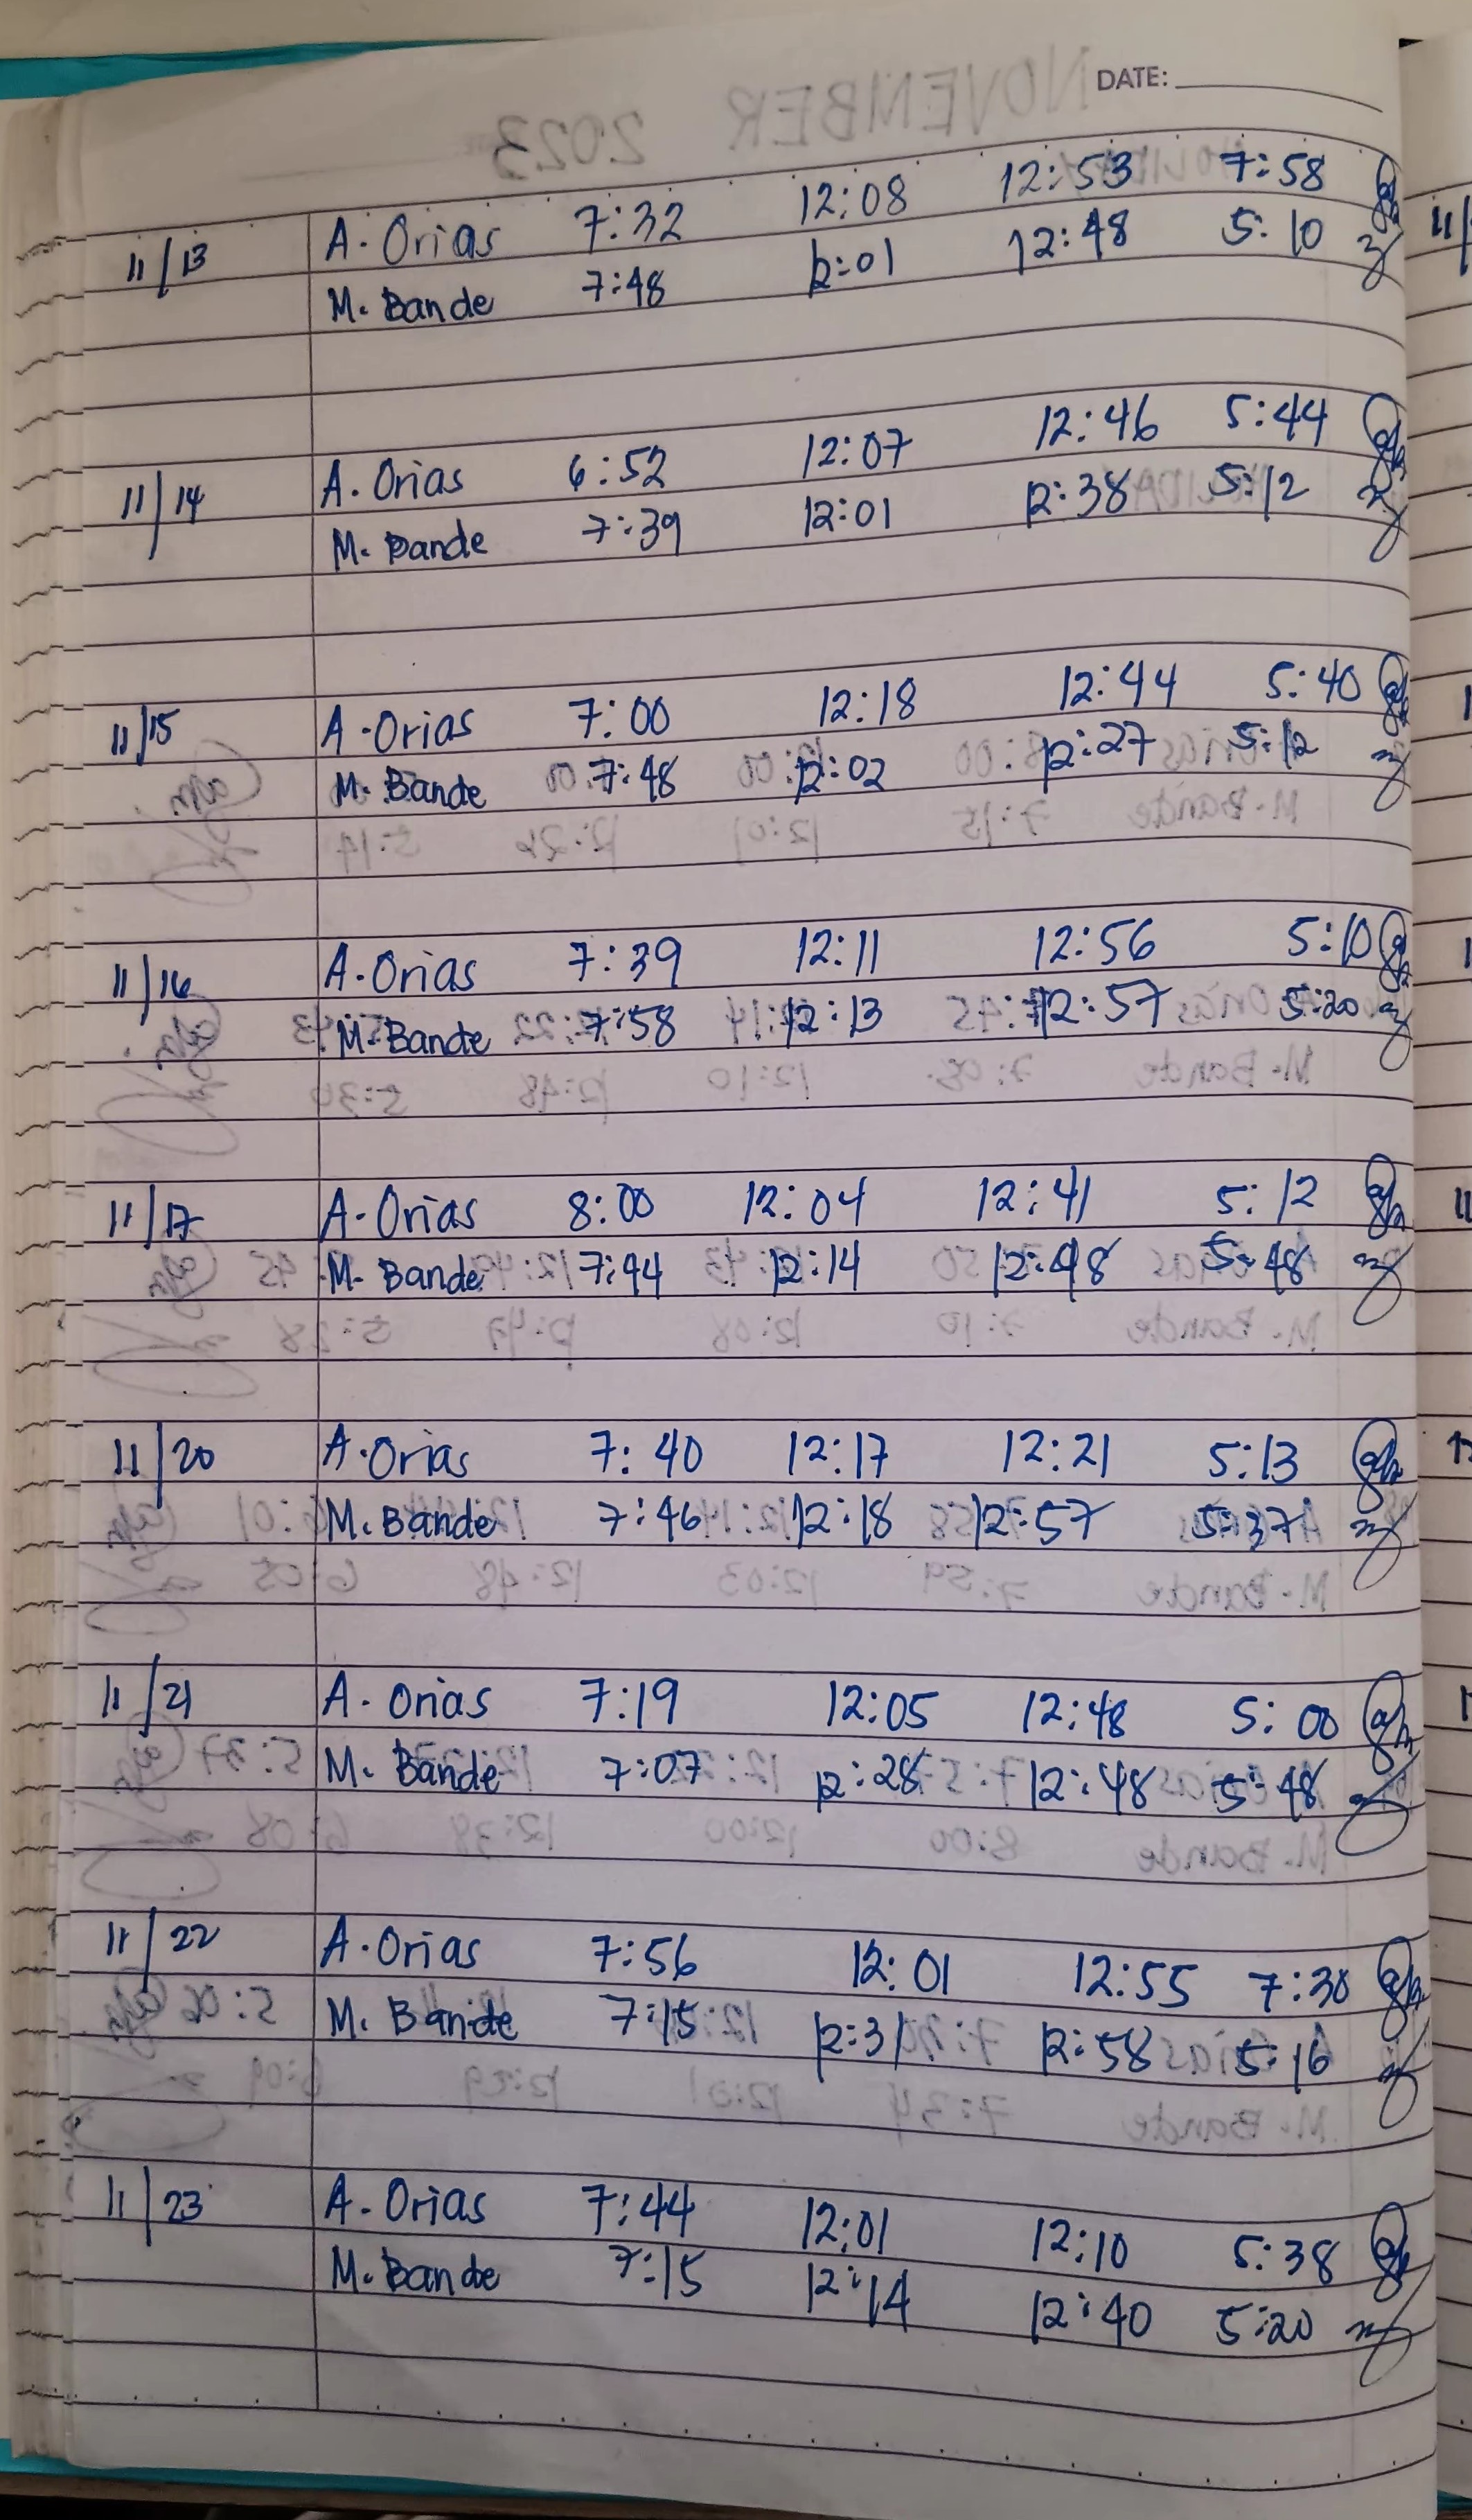 DATE:
NOVEMBER 2023
11/13 A. Orias 7:32 12:08 12:53 7:58
M. Bande 7:48 12:01 12:48 5:10
11/14 A. Orias 6:52 12:07 12:46 5:44
M. Bande 7:39 12:01 12:38 5:12
11/15 A. Orias 7:00 12:18 12:44 5:40
M. Bande 7:48 12:02 12:27 5:12
11/16 A. Orias 7:39 12:11 12:56 5:10
M. Bande 7:58 12:13 12:57 5:20
11/17 A. Orias 8:00 12:04 12:41 5:12
M. Bande 7:44 12:14 12:48 5:48
11/20 A. Orias 7:40 12:17 12:21 5:13
M. Bande 7:46 12:18 12:57 5:37
11/21 A. Orias 7:19 12:05 12:48 5:00
M. Bande 7:07 12:28 12:48 5:48
11/22 A. Orias 7:56 12:01 12:55 7:30
M. Bande 7:15 12:31 12:58 5:16
11/23 A. Orias 7:44 12:01 12:10 5:38
M. Bande 7:15 12:14 12:40 5:20